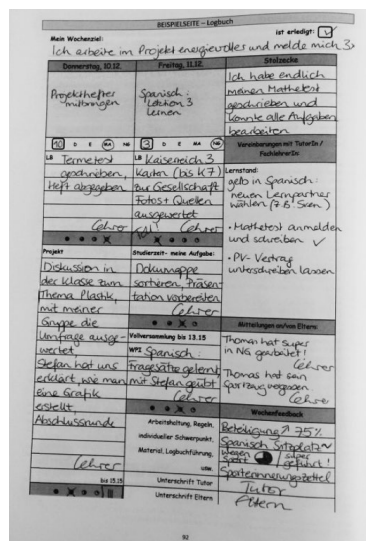 BEISPIELSEITE – Logbuch
Mein Wochenziel:
ist erledigt:
Ich arbeite im Projekt energievoller und melde mich 3x
Donnerstag, 10.12.
Projekthefter
mitbringen
10 D E MA NG
LB Termetest
geschrieben,
Heft abgegeben
Lehrer
Projekt
Diskussion in
der Klasse zum
Thema Plastik,
mit meiner
Gruppe die
Umfrage ausge-
wertet,
Stefan hat uns
erklärt, wie man
eine Grafik
erstellt,
Abschlussrunde
Lehrer
bis 15.15
Freitag, 11.12.
Spanisch:
Lektion 3
lernen
3 D E MA NG
LB Kaiserreich 3
Karton (bis K7)
zur Gesellschaft
Fotos + Quellen
ausgewertet
Lehrer
Studierzeit- meine Aufgabe:
Dokumappe
sortieren, Präsen-
tation vorbereiten
Lehrer
Vollversammlung bis 13.15
WP1 Spanisch:
Fragesätze gelernt
mit Stefan geübt
Lehrer
Arbeitshaltung, Regeln,
individueller Schwerpunkt,
Material, Logbuchführung,
usw.
Unterschrift Tutor
Unterschrift Eltern
Stolzecke
Ich habe endlich
meinen Mathetest
geschrieben und
konnte alle Aufgaben
bearbeiten
Vereinbarungen mit TutorIn /
FachlehrerIn
Lernstand:
gelb in Spanisch:
neuen Lernpartner
wählen (z.B. Sven)
• Mathetest anmelden
und schreiben ✓
• PV- Vertrag
unterschreiben lassen
Mitteilungen an/von Eltern
Thomas hat super
in NG gearbeitet!
Lehrer
Thomas hat sein
Sportzeug vergessen
Lehrer
Wochenfeedback
Beteiligung ↗ 75%
Spanisch Sitzplatz ~
wegen
Sport
super
geführt!
Späterinnerungszettel
Tutor
Eltern
92